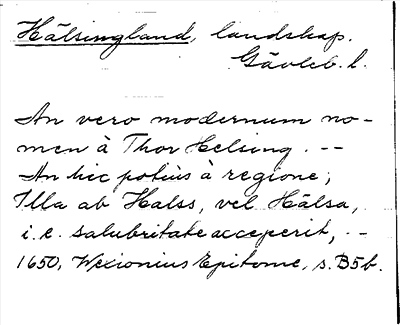 Hälsingland, landskap.
Gävleb. l.
An vero modernum no-
men à Thor Helsing. --
An hic potius à regione,
Illa ab Halss, vel Hälsa,
i. e. salubritate acceperit, --
1650, Wexionius Epitome, s. B5b.